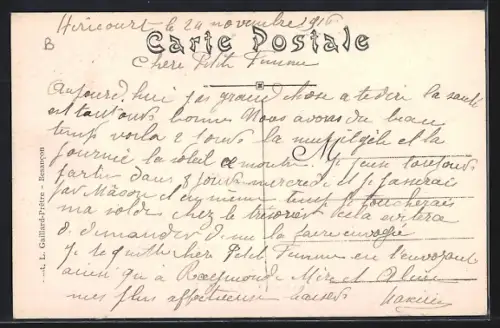 Héricourt le 24 novembre 1916
B
Carte Postale
Chère Petite Femme
Aujourd'hui pas grand chose a te dire la santé
est toujours bonne Nous avons du beau
temps voila 2 jours la nuit il gèle et la
journée le soleil ce montre Je pense toujours
partir dans 8 jours mercredi et je passerais
par Mâcon et en même temps je toucherais
ma solde chez le trésorier cela evitera
de demander de me la faire envoyé
Je te quitte chère Petite Femme en t'envoyant
ainsi qu'a Raymond Mère et
mes plus affectueux baisers
L. Gaillard-Prêtre - Besançon